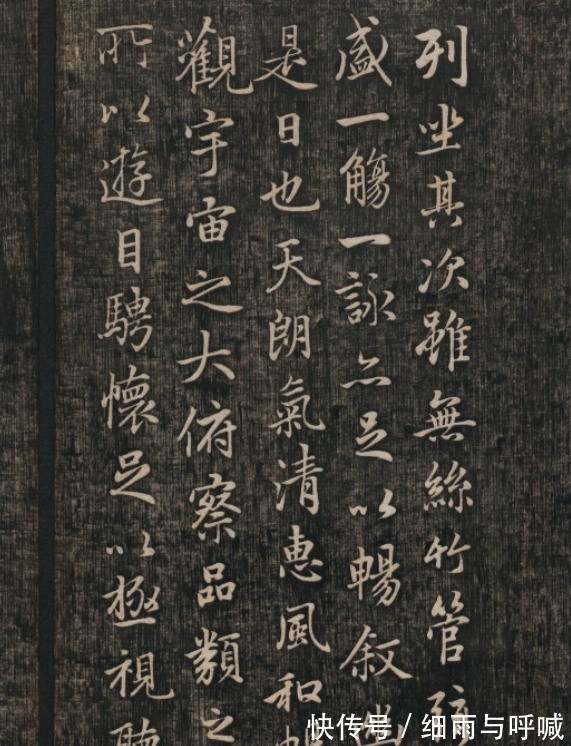 列坐其次雖無絲竹管
盛一觴一詠亦足以暢敘
是日也天朗氣清惠風和
觀宇宙之大俯察品類之
所以遊目騁懷足以極視聽
快传号/细雨与呼喊